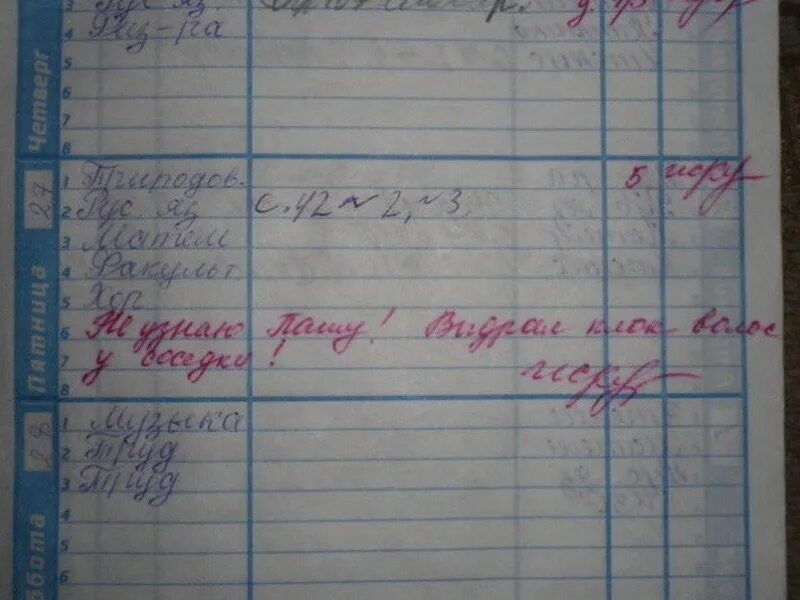 3 Рус яз.
4 Физ-ра
5
6
7
8
Четверг
27
1 Природов. 5
2 Рус. яз с. 42 ~ 2, ~ 3
3 Матем
4 Факульт.
5 Хор
6 Не узнаю Пашу! Выдрал клок волос
7 у соседки!
8
Пятница
28
1 Музыка
2 Труд
3 Труд
4
5
6
ббота